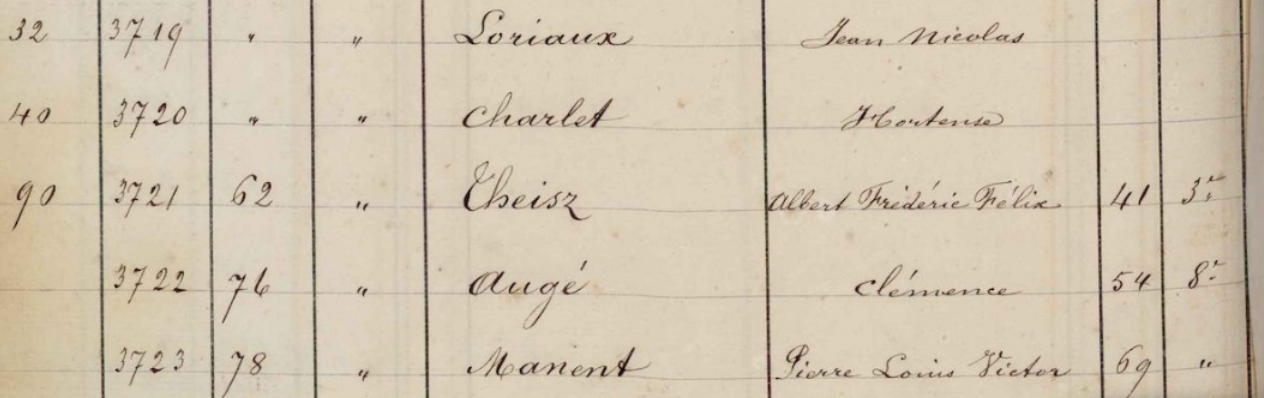 32 3719 " " Loriaux Jean Nicolas
40 3720 " " Charlet Hortense
90 3721 62 " Theisz Albert Frédéric Félix 41 3r
3722 76 " Augé Clémence 54 8r
3723 78 " Manent Pierre Louis Victor 69 "